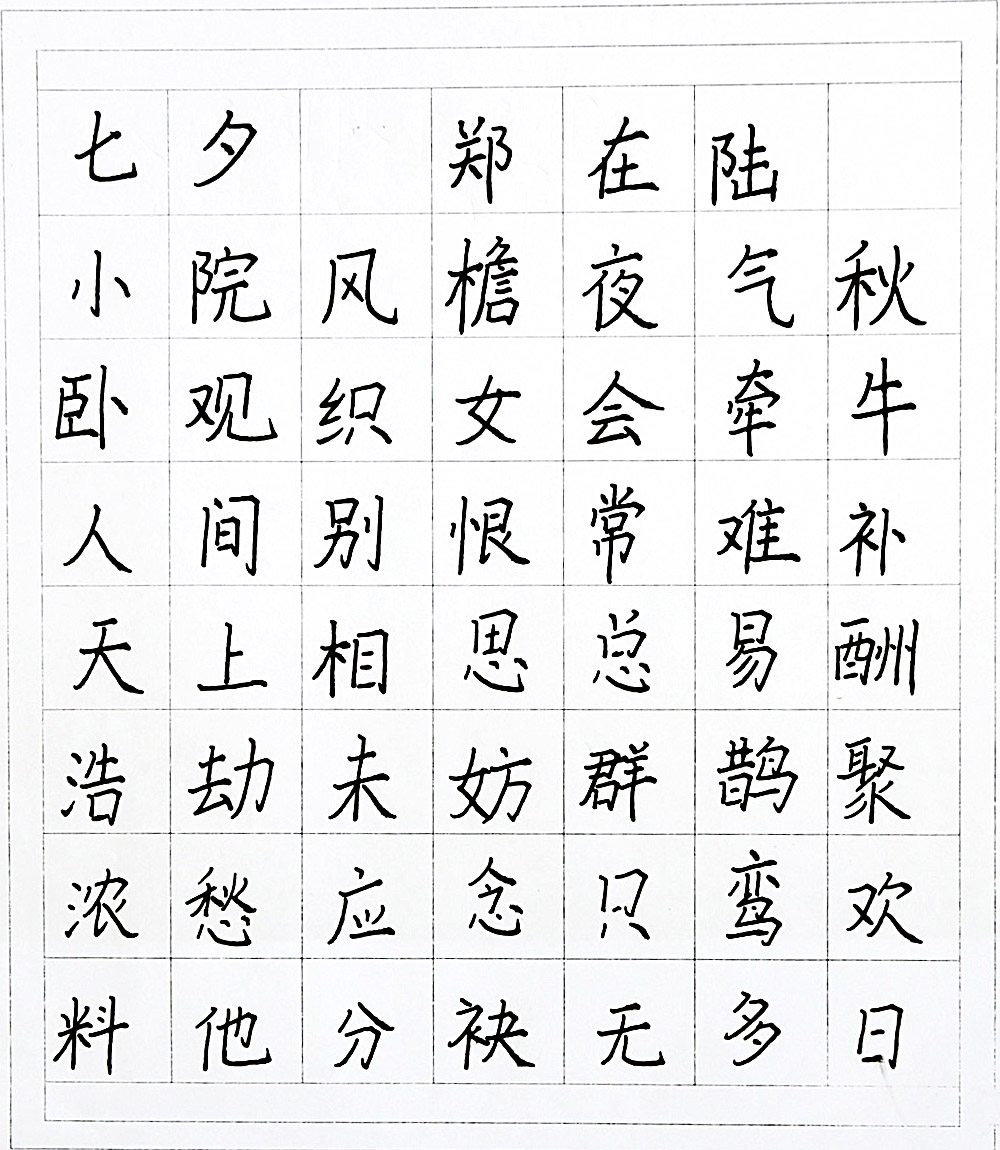 七夕 郑在陆
小院风檐夜气秋
卧观织女会牵牛
人间别恨常难补
天上相思总易酬
浩劫未妨群鹊聚
浓愁应念只鸾欢
料他分袂无多日